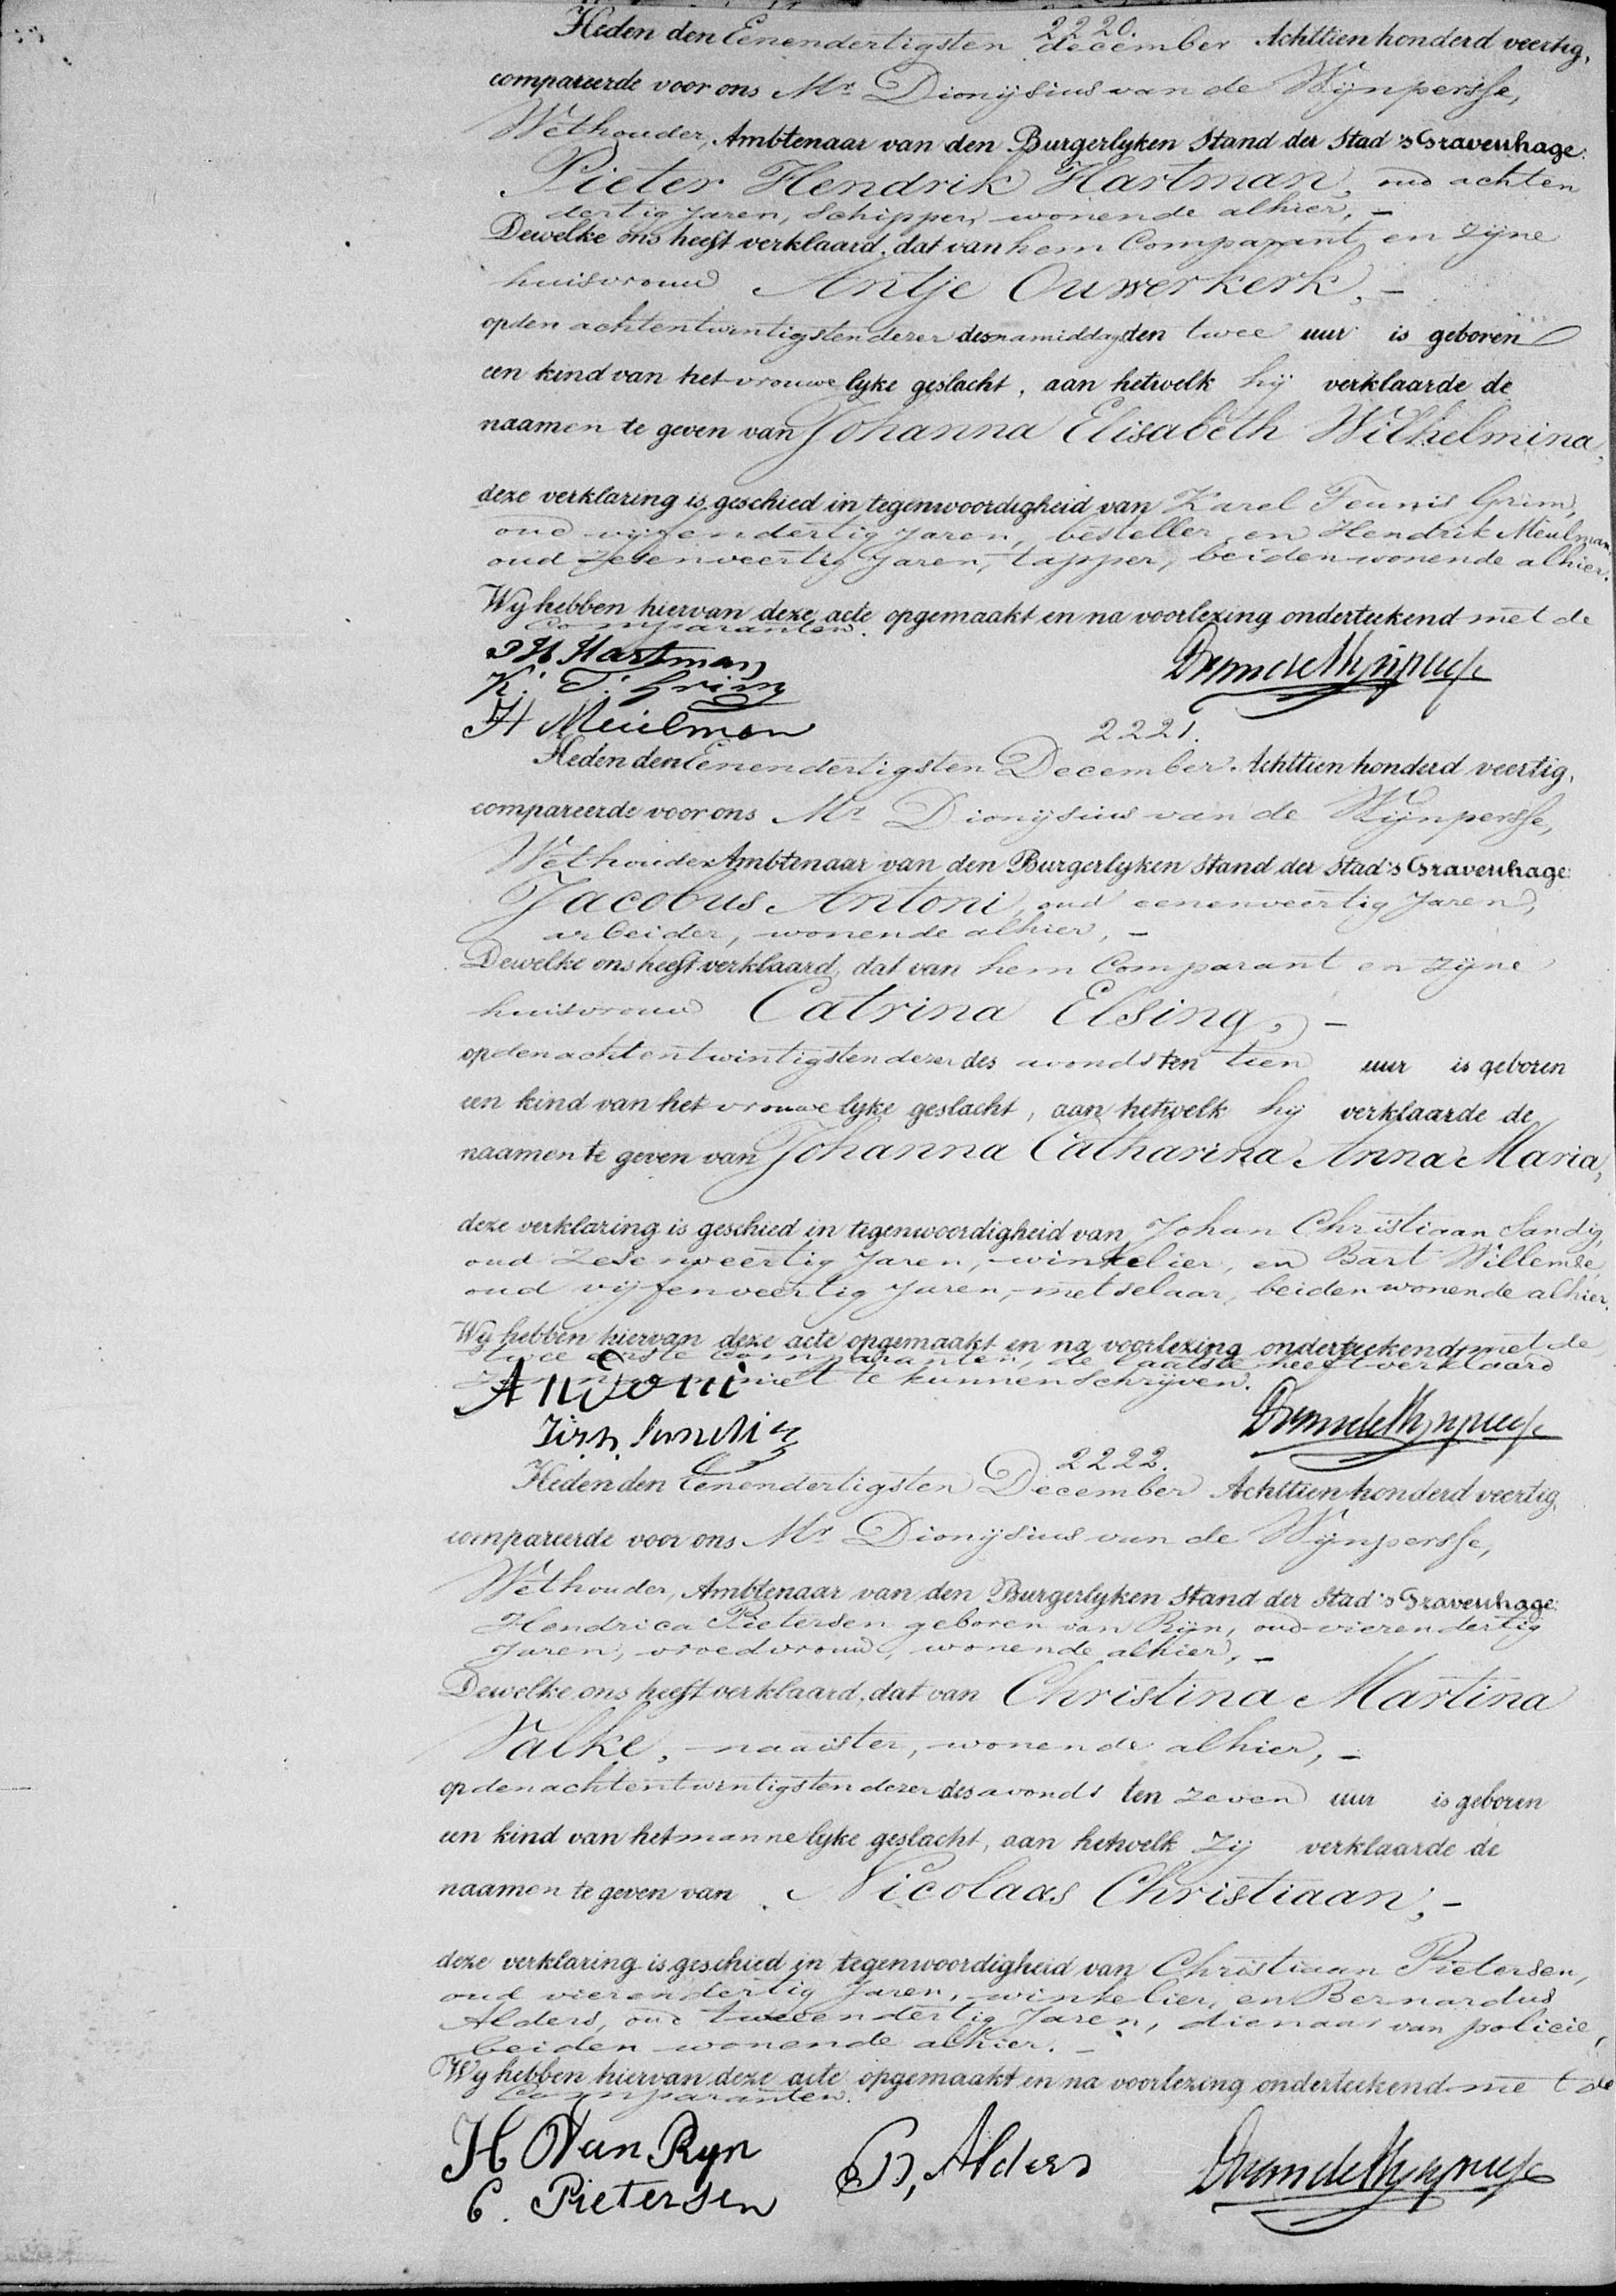 2220.
Heden den Eenendertigsten december Achttien honderd veertig,
compareerde voor ons Mr Dionijsius van de Wijnpersse,
Wethouder, Ambtenaar van den Burgerlyken Stand der Stad 'sGravenhage:
Pieter Hendrik Hartman, oud achten
dertig Jaren, Schipper, wonende alhier, -
Dewelke ons heeft verklaard, dat van hem Comparant en zijne
huisvrouw Antje Ouwerkerk, -
op den achtentwintigsten dezer des namiddags ten twee uur is geboren
een kind van het vrouwelyke geslacht, aan hetwelk hij verklaarde de
naamen te geven van Johanna Elisabeth Wilhelmina,
deze verklaring is geschied in tegenwoordigheid van Karel Teunis Grim,
oud vijfendertig Jaren, besteller, en Hendrik Meulman,
oud zesenveertig Jaren, tapper, beiden wonende alhier.
Wy hebben hiervan deze acte opgemaakt en na voorlezing onderteekend met de
Comparanten.
PH Hartman
K. T. Grim
H Meulman
2221.
Heden den Eenendertigsten December Achttien honderd veertig,
compareerde voor ons Mr Dionijsius van de Wijnpersse,
Wethouder Ambtenaar van den Burgerlyken Stand der Stad 'sGravenhage:
Jacobus Antoni, oud eenenveertig Jaren,
arbeider, wonende alhier, -
Dewelke ons heeft verklaard, dat van hem Comparant en zijne
huisvrouw Catrina Elsing, -
op den achtentwintigsten dezer des avonds ten tien uur is geboren
een kind van het vrouwelyke geslacht, aan hetwelk hij verklaarde de
naamen te geven van Johanna Catharina Anna Maria,
deze verklaring is geschied in tegenwoordigheid van Johan Christiaan Sandig,
oud zesenveertig Jaren, winkelier, en Bart Willemse,
oud vijfenveertig Jaren, metselaar, beiden wonende alhier.
Wy hebben hiervan deze acte opgemaakt en na voorlezing onderteekend met de
twee eerste Comparanten, de laatste heeft verklaard
niet te kunnen schrijven.
Andoni
2222.
Heden den Eenendertigsten December Achttien honderd veertig,
compareerde voor ons Mr Dionijsius van de Wijnpersse,
Wethouder, Ambtenaar van den Burgerlyken Stand der Stad 'sGravenhage:
Hendrica Pietersen geboren van Rijn, oud vierendertig
Jaren, vroedvrouw, wonende alhier, -
Dewelke ons heeft verklaard, dat van Christina Martina
Valke, naaister, wonende alhier, -
op den achtentwintigsten dezer des avonds ten zeven uur is geboren
een kind van het mannelyke geslacht, aan hetwelk zij verklaarde de
naamen te geven van Nicolaas Christiaan, -
deze verklaring is geschied in tegenwoordigheid van Christiaan Pietersen,
oud vierendertig Jaren, winkelier, en Bernardus
Alders, oud tweeendertig Jaren, dienaar van policie,
beiden wonende alhier. -
Wy hebben hiervan deze acte opgemaakt en na voorlezing onderteekend met de
Comparanten.
H Van Ryn
B, Alders
C. Pietersen